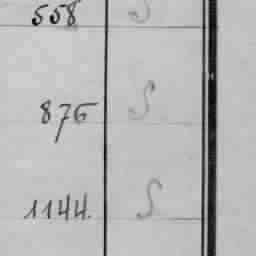 558 S
876 S
1144. S